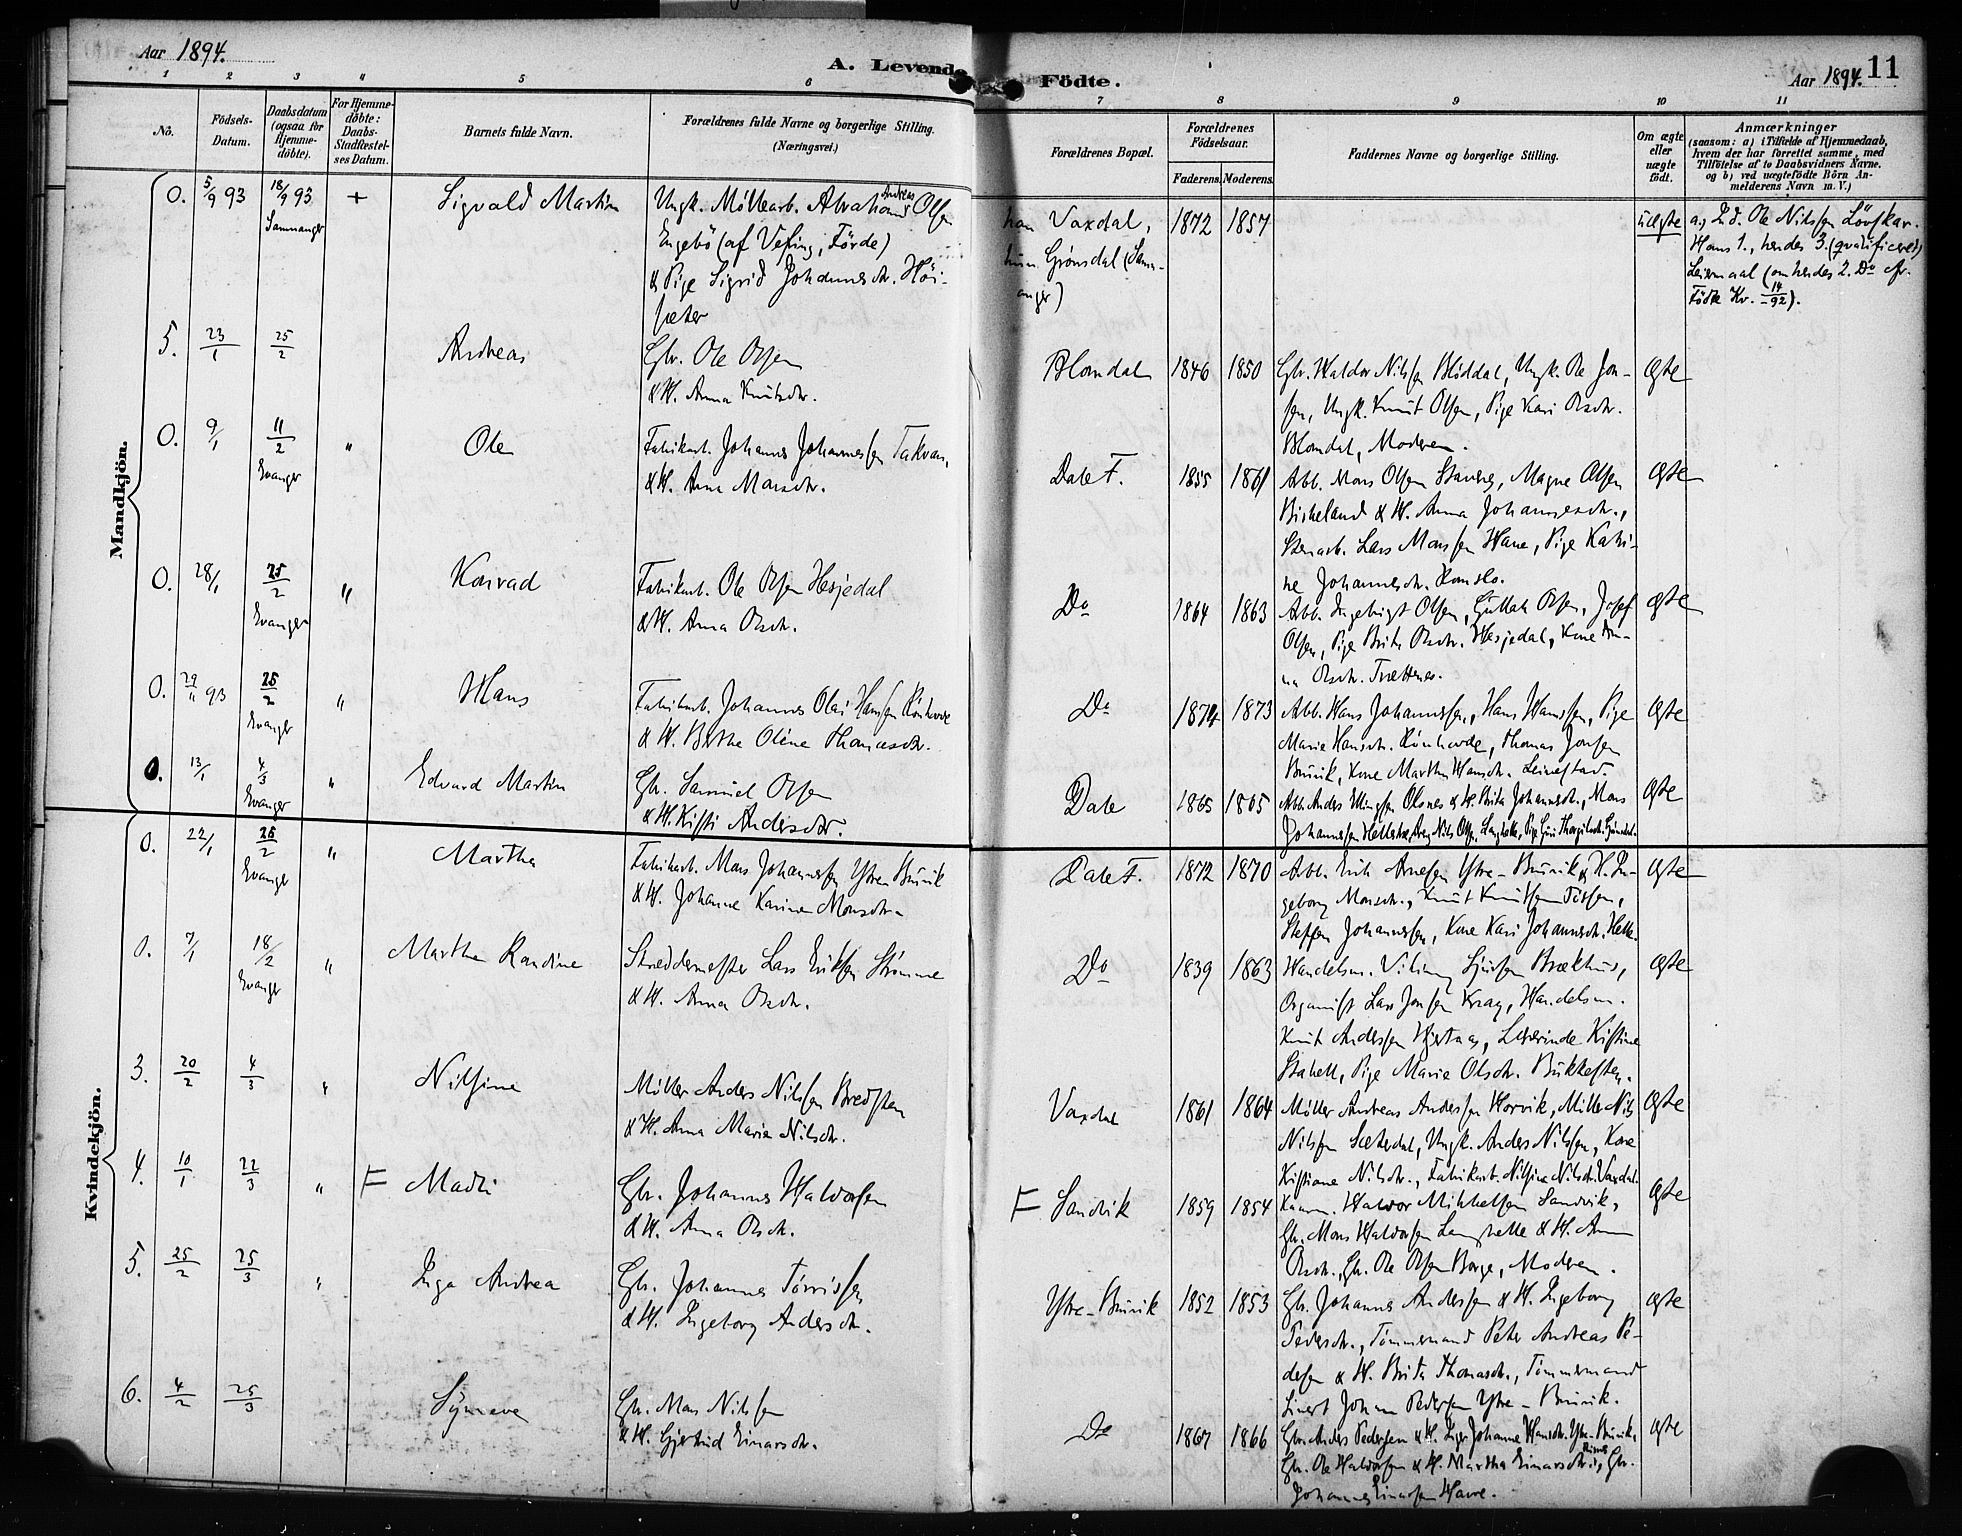 Aar 1894.
A. Levende Födte.
Aar 1894. 11
1 2 3 4 5 6 7 8 9 10 11
No.
Födsels-Datum.
Daabsdatum (ogsaa for Hjemme-döbte).
For Hjemme-döbte: Daabs-Stadfæstel-ses Datum.
Barnets fulde Navn.
Forældrenes fulde Navne og borgerlige Stilling.
(Næringsvei.)
Forældrenes Bopæl.
Forældrenes Födselsaar.
Faderens. Moderens.
Faddernes Navne og borgerlige Stilling.
Om ægte eller uægte födt.
Anmærkninger
(saasom: a) i Tilfælde af Hjemmedaab,
hvem der har forrettet samme, med
Tilföielse af to Daabsvidners Navne.
og b) ved uægtefödte Börn An-
melderens Navn m. V.)
Mandkjön.
0. 5/9 93 18/9 93 + Sigvald Martin
Samnanger
Ungk. Möllearb. Abraham Andreas Olsen
Engebö (af Vefring, Förde)
& Pige Sigrid Johannesdr. Höi-
sæter
han Vaxdal, 1872 1857 uægte
hun Grönsdal (Samn-
anger)
a, Ed. Ole Nilssen Lövfkar.
Hans 1., hendes 3. (qvalificeret)
Leiermaal (om hendes 2. Do cfr.
Födte Kv. 14/92).
5. 23/1 25/2 Andreas
Gbr. Ole Olsen
& H. Anna Knutsdr.
Blomdal 1846 1850
Gbr. Haldor Nilssen Blomdal, Ungk. Ole Jon-
sen, Ungk. Knut Olsen, Pige Kari Olsdr.
Blomdal, Moderen.
Ægte
0. 9/1 11/2 " Ole
Evanger
Fabrikarb. Johannes Johannessen Takvam,
& H. Anna Monsdr.
Dale F. 1855 1861
Arb. Mons Olsen Stavhes, Magne Olsen
Birkeland & H. Anna Johannesdr.,
Stenarb. Lars Monssen Hane, Pige Katri-
ne Johannesdr. Romslo.
Ægte
0. 28/1 25/2 " Konrad
Evanger
Fabrikarb. Ole Olsen Hesjedal
& H. Anna Olsdr.
Do 1864 1863
Arb. Ingebrigt Olsen, Gullak Olsen, Josef
Olsen, Pige Brita Olsdr. Hesjedal, Kone An-
na Olsdr. Trættenes.
Ægte
0. 29/11 93 25/2 " Hans
Evanger
Fabrikarb. Johannes Olai Hanssen Rönhovde
& H. Berthe Oline Thomasdr.
Do 1874 1873
Arb. Hans Johannessen, Hans Hanssen, Pige
Marie Hansdr. Rönhovde, Thomas Jonsen
Bruvik, Kone Martha Hansdr. Leirestad.
Ægte
0. 13/1 4/3 " Edvard Martin
Evanger
Gbr. Samuel Olsen
& H. Kisti Andersdr.
Dale 1865 1865
Arb. Anders Ellingsen Olsnes & H. Brita Johannesdr., Mons
Johannessen
Ægte
Kvindekjön.
0. 22/1 25/2 " Martha
Evanger
Fabrikarb. Mons Johannessen Ytre Bruvik
& H. Johanne Karine Monsdr.
Dale F. 1872 1870
Arb. Erik Arnesen Ytre-Bruvik & H. In-
geborg Monsdr., Knut Knutsen
Steffen Johannessen, Kone Kari Johannesdr. Helle.
Ægte
0. 7/1 18/2 " Martha Randine
Evanger
Skreddermester Lars Eriksen Strömme
& H. Anna Olsdr.
Do 1839 1863
Handelsm. Viking Sjursen Brækhus,
Organist Lars Jonsen Kvaag, Handelsm.
Knut Anderssen Hjertaas, Lærerinde Kistine
Stabell, Pige Marie Olsdr. Bukkesten.
Ægte
3. 20/2 4/3 " Nilsine
Möller Anders Nilssen Bredsten
& H. Anna Marie Nilsdr.
Vaxdal 1861 1864
Möller Andreas Anderssen Horvik, Möller Nils
Nilssen Sæterdal, Ungk. Anders Nilssen, Kone
Kistiane Nilsdr., Fabrikarb. Nilsine Nilsdr. Vaxdal.
Ægte
4. 10/1 22/3 " F Madli
Gbr. Johannes Haldorsen
& H. Anna Olsdr.
F Sandvik 1859 1854
Kaarm. Haldor Mikkelsen Sandvik,
Gbr. Mons Haldorsen Langhelle & H. Anna
Olsdr., Gbr. Ole Olsen Borge, Moderen.
Ægte
5. 25/2 25/3 " Inga Andrea
Gbr. Johannes Törrissen
& H. Ingeborg Andersdr.
Ytre-Bruvik 1852 1853
Gbr. Johannes Anderssen & H. Ingeborg
Pedersdr., Tömmermand Peter Andreas Pe-
dersen & H. Brita Thomasdr., Tömmermand
Sivert Johan Pedersen Ytre-Bruvik.
Ægte
6. 4/2 25/3 Synneve
Gbr. Mons Nilssen
& H. Gjertrud Einarsdr.
Do 1867 1866
Gbr. Anders Pedersen & H. Inger Johanne Hansdr. Ytre-Bruvik,
Gbr. Ole Haldorsen & H. Martha Einarsdr. , Gbr.
Johannes Einarssen Havre.
Ægte